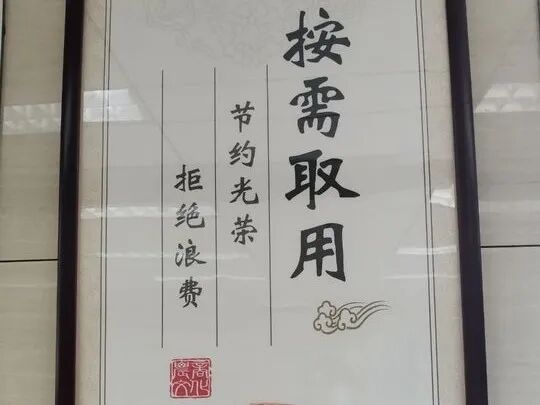 按需取用
节约光荣
拒绝浪费